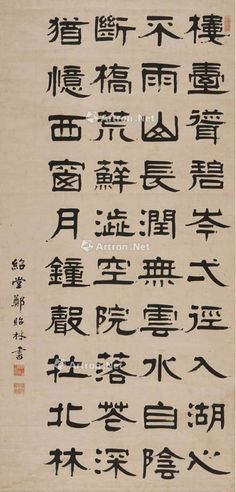 樓臺聳碧岑弌徑入湖心
不雨山長潤無雲水自陰
斷橋荒蘚澁空院落花深
猶憶西窗月鐘聲在北林
紹堂鄭貽林書
Artron.Net
Artron.Net
Artron.Net